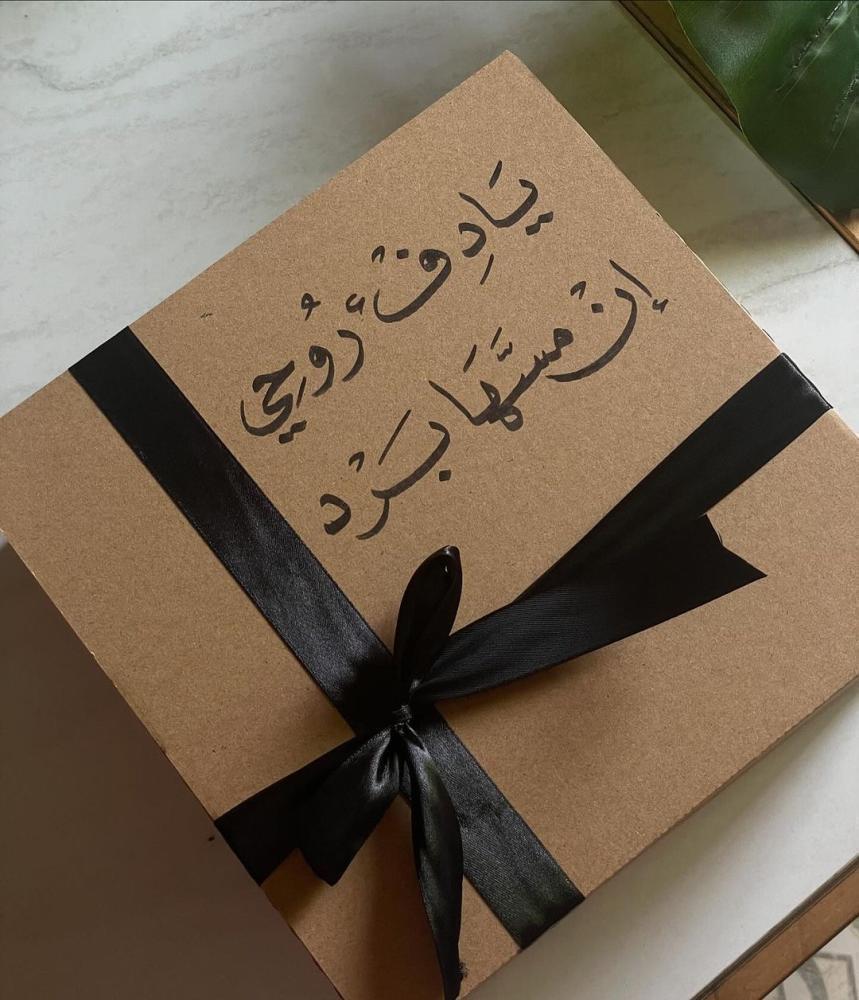 يَادِفْ أرُوحِي
إنْ مسَّهَا بَرْد